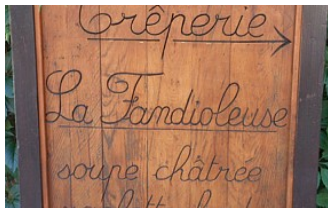 Crêperie
La Fandioleuse
soupe châtrée